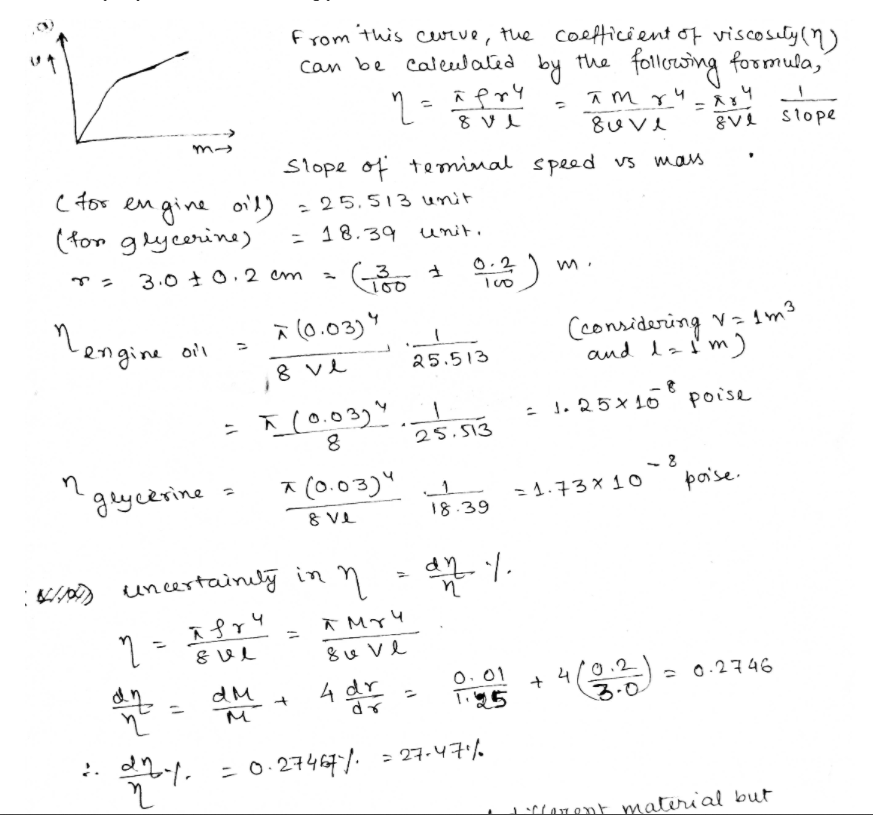 (a)
v↑
m→
From this curve, the coefficient of viscosity (η)
can be calculated by the following formula,
η = πρr⁴ / 8vl = πm r⁴ / 8vVl = πr⁴ / 8Vl · 1 / slope
Slope of teminal speed vs mass
(for engine oil) = 25.513 unit
(for glycerine) = 18.39 unit.
r = 3.0 ± 0.2 cm = (3/100 ± 0.2/100) m.
η engine oil = π(0.03)⁴ / 8 Vl · 1/25.513 (considering V = 1m³ and l = 1m)
= π(0.03)⁴ / 8 · 1/25.513 = 1.25×10⁻⁸ poise
η glycerine = π(0.03)⁴ / 8Vl · 1/18.39 = 1.73×10⁻⁸ poise.
uncertainity in η = dη/η %.
η = πρr⁴ / 8vl = πMr⁴ / 8vVl
dη/η = dM/M + 4 dr/dr = 0.01/1.25 + 4(0.2/3.0) = 0.2746
∴ dη/η %. = 0.27467%. = 27.47%
different material but